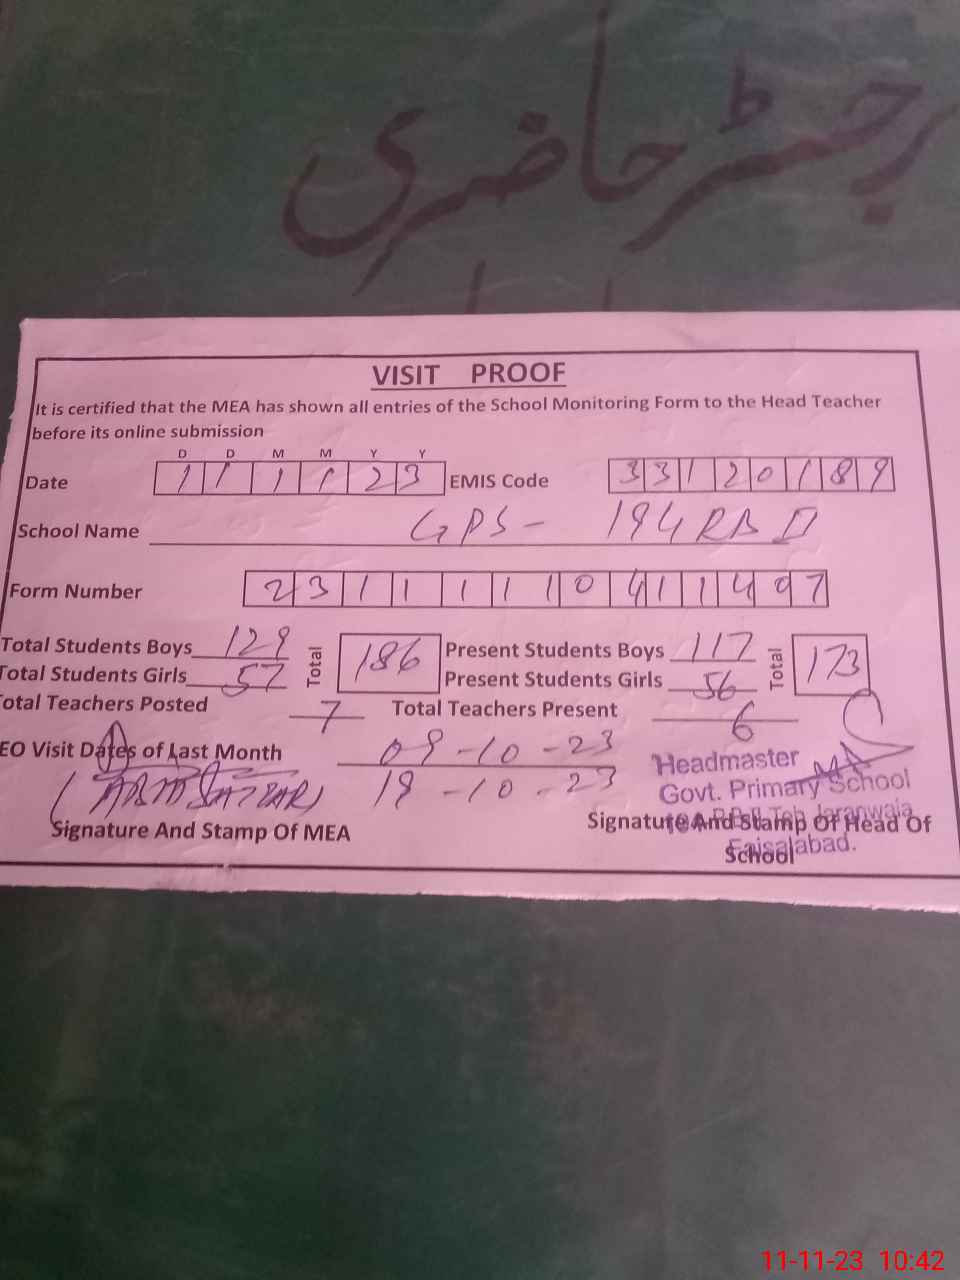 رجسٹر حاضری
VISIT PROOF
It is certified that the MEA has shown all entries of the School Monitoring Form to the Head Teacher
before its online submission
D D M M Y Y
Date 1 1 1 1 2 3 EMIS Code 3 3 1 2 0 1 8 9
School Name GPS - 194 RB II
Form Number 2 3 1 1 1 1 1 0 4 1 1 4 9 7
Total Students Boys 129 Total 186 Present Students Boys 117 Total 173
Total Students Girls 57 Present Students Girls 56
otal Teachers Posted 7 Total Teachers Present 6
EO Visit Dates of Last Month 09-10-23
19-10-23
Headmaster
Govt. Primary School
Teh Jaranwala
Faisalabad.
Signature And Stamp Of MEA
Signature And Stamp Of Head Of
School
11-11-23 10:42